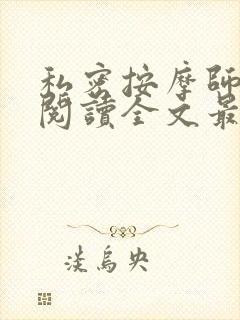 私密按摩師
閱讀全文最
淡烏央